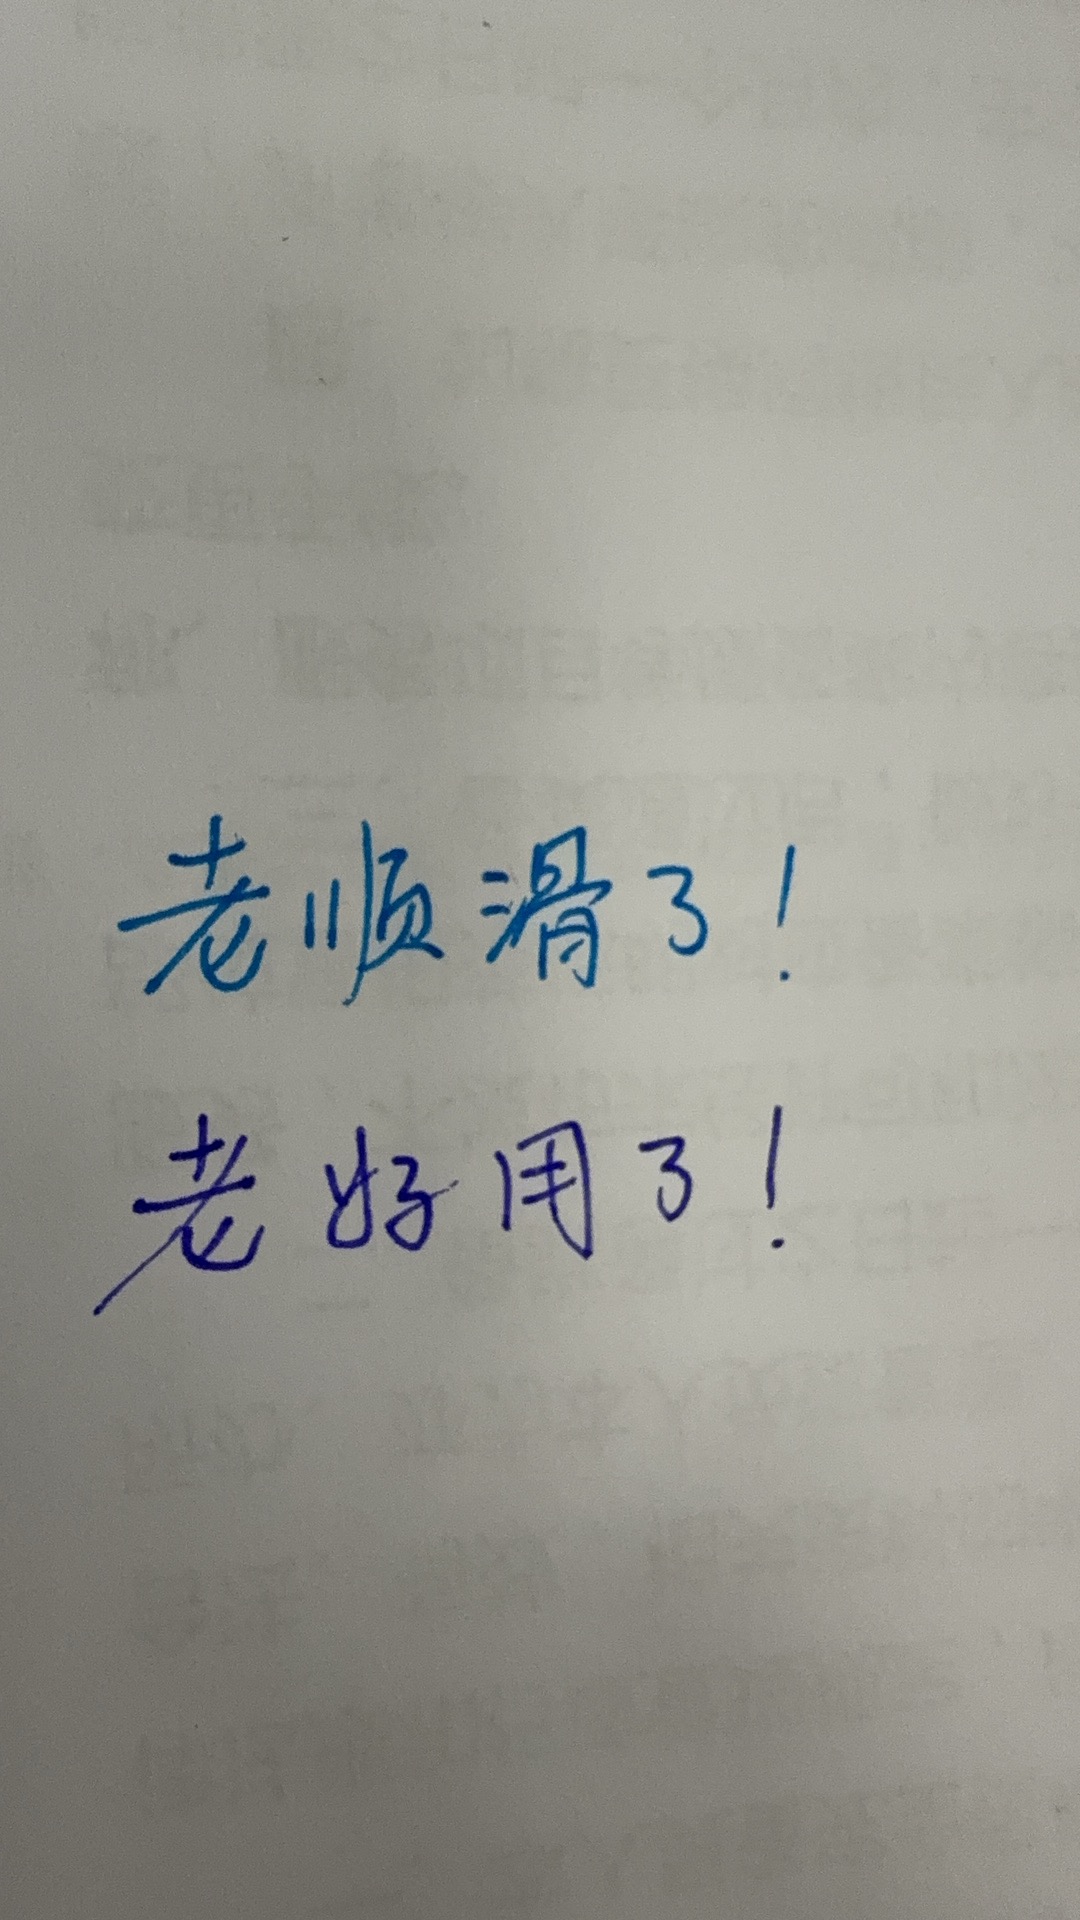 老顺滑了！
老好用了！